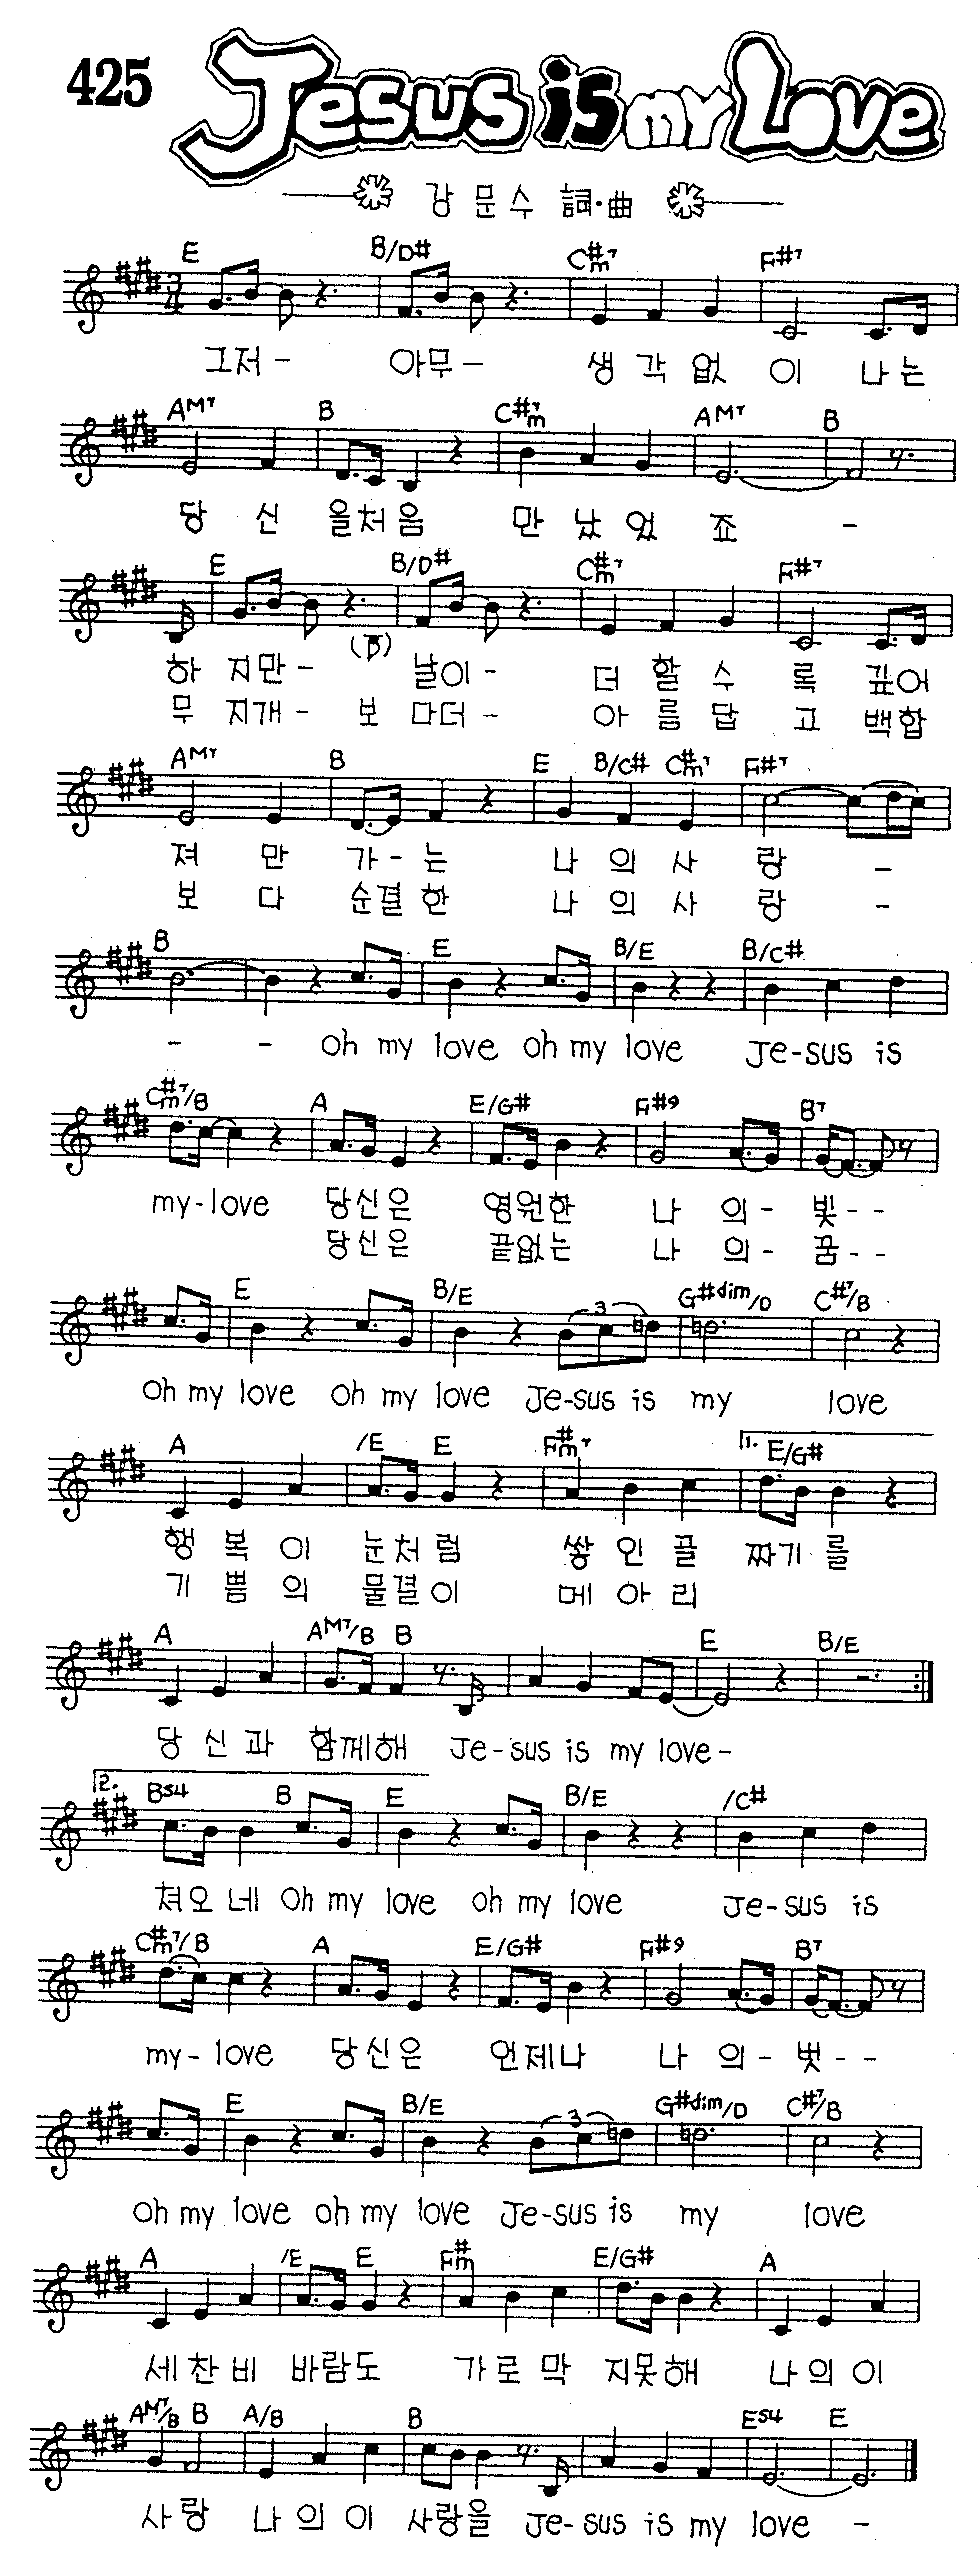 425 Jesus is my Love
강 문 수 詞·曲
E B/D# C#m7 F#7
3/4
그저 - 아무 - 생 각 없 이 나 는
AM7 B C#m7 AM7 B
당 신 을처 음 만 났 었 죠 -
E B/D# C#m7 F#7
(B)
하 지만 - 날이 - 더 할 수 록 깊어
무 지개 - 보 다더 - 아 름 답 고 백합
AM7 B E B/C# C#m7 F#7
져 만 가 - 는 나 의 사 랑 -
보 다 순결 한 나 의 사 랑 -
B E B/E B/C#
- - oh my love oh my love Je-sus is
C#m7/B A E/G# F#9 B7
my-love 당신은 영원한 나 의- 빛--
당신은 끝없는 나 의- 꿈--
E B/E G#dim/D C#7/B
3
oh my love oh my love Je-sus is my love
A /E E F#m7 1. E/G#
행 복 이 눈처 럼 쌓 인 골 짜기 를
기 쁨 의 물결 이 메 아 리
A AM7/B B E B/E
당 신 과 함께해 Je-sus is my love-
2. Bs4 B E B/E /C#
쳐오 네 oh my love oh my love Je-sus is
C#m7/B A E/G# F#9 B7
my-love 당신은 언제나 나 의- 벗--
E B/E G#dim/D C#7/B
3
oh my love oh my love Je-sus is my love
A /E E F#m E/G# A
세 찬 비 바람도 가 로 막 지못해 나 의 이
AM7/B B A/B B Es4 E
사 랑 나 의 이 사랑을 Je-sus is my love -